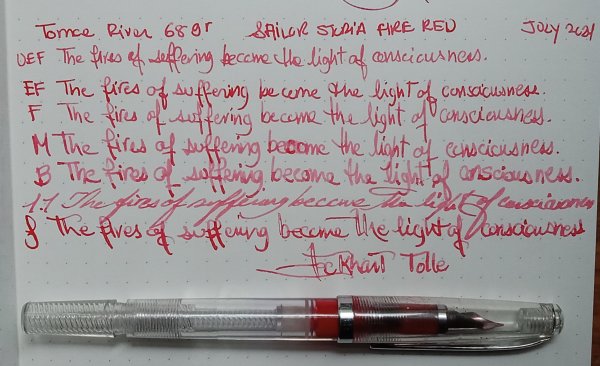 Tomoe River 68gr SAILOR STORIA FIRE RED JULY 2021
UEF The fires of suffering become the light of consciousness.
EF The fires of suffering become the light of consciousness.
F The fires of suffering become the light of consciousness.
M The fires of suffering become the light of consciousness.
B The fires of suffering become the light of consciousness.
1.1 The fires of suffering become the light of consciousness
f The fires of suffering become the light of consciousness
Eckhart Tolle